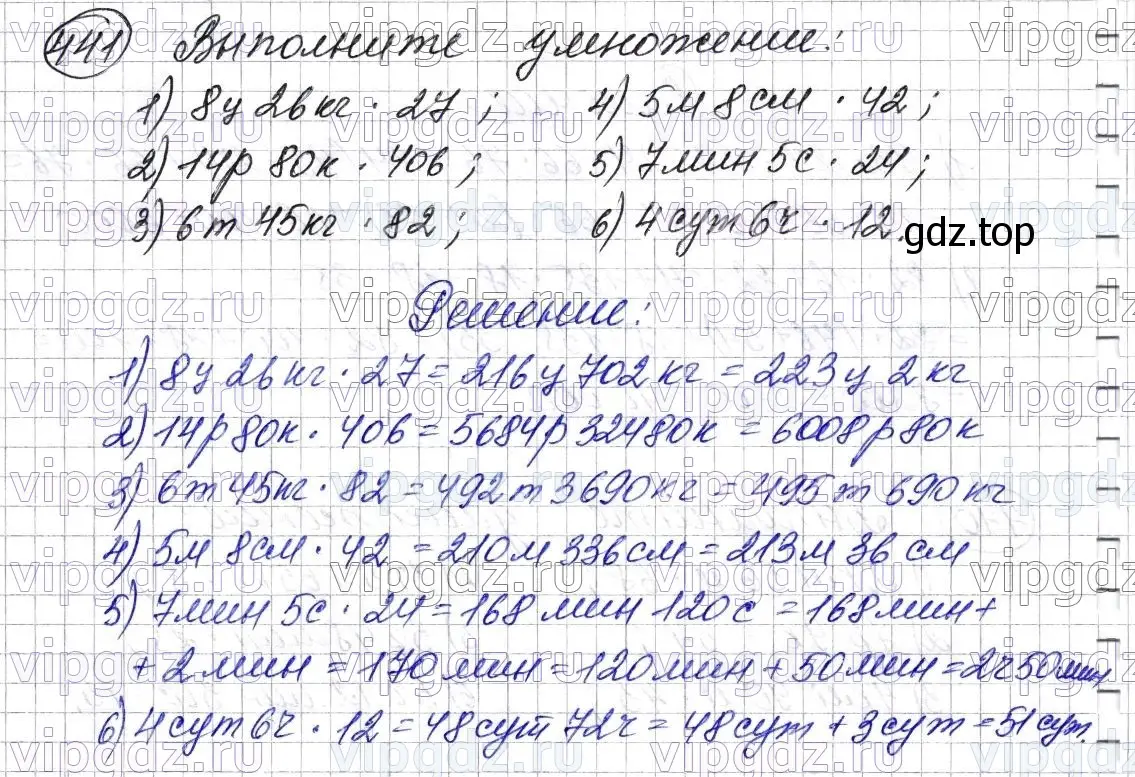 441 Выполните умножение:
1) 8ц 26кг · 27; 4) 5м 8см · 42;
2) 14р 80к · 406; 5) 7мин 5с · 24;
3) 6т 45кг · 82; 6) 4сут 6ч · 12.
gdz.top
Решение:
1) 8ц 26кг · 27 = 216ц 702кг = 223ц 2кг
2) 14р 80к · 406 = 5684р 32480к = 6008р 80к
3) 6т 45кг · 82 = 492т 3690кг = 495т 690кг
4) 5м 8см · 42 = 210м 336см = 213м 36см
5) 7мин 5с · 24 = 168мин 120с = 168мин +
+ 2мин = 170мин = 120мин + 50мин = 2ч 50мин
6) 4сут 6ч · 12 = 48сут 72ч = 48сут + 3сут = 51сут.